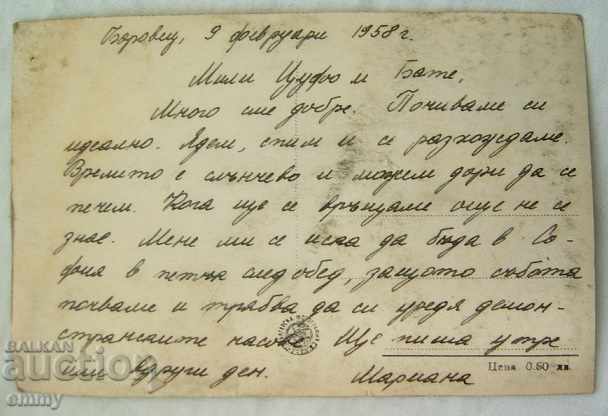 Боровец, 9 февруари 1958 г.
Мили Цуфю и Бате,
Много сме добре. Почиваме си
идеално. Ядем, спим и се разхождаме.
Времето е слънчево и можем дори да се
печем. Кога ще се връщаме още не се
знае. Мене ми се иска да бъда в Со-
фия в петък след обед, защото събота
почваме и трябва да си уредя демон-
странските часове. Ще пиша утре
или други ден. Мариана
Цена 0.50 лв.
BALKAN
auction
emmy